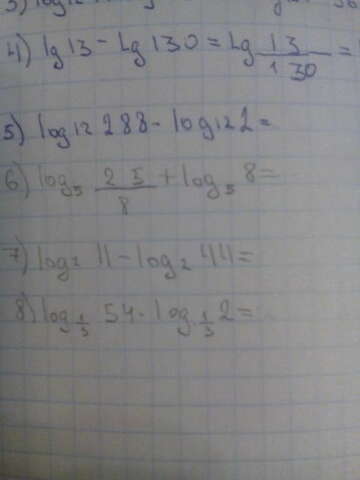 4) lg 13 - lg 130 = lg 13/130 =
5) log₁₂ 288 - log₁₂ 2 =
6) log₅ 25/8 + log₅ 8 =
7) log₂ 11 - log₂ 44 =
8) log₁/₃ 54 - log₁/₃ 2 =